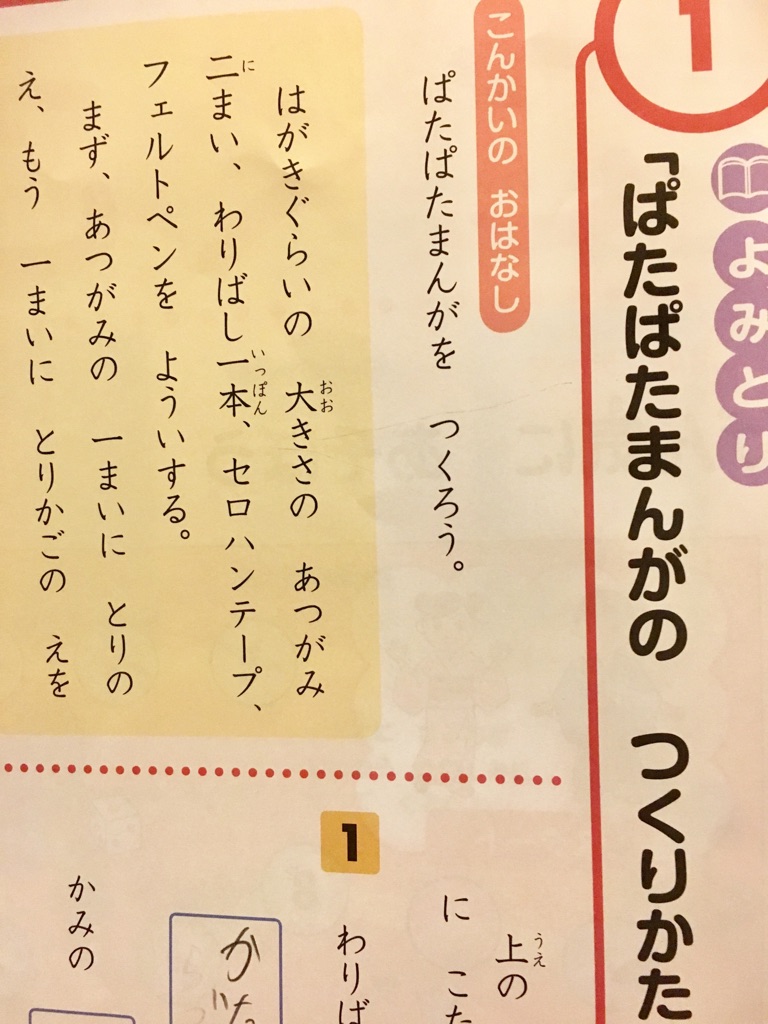 1
よみとり
「ぱたぱたまんがの つくりかた
こんかいの おはなし
ぱたぱたまんがを つくろう。
はがきぐらいの 大きさの あつがみ
二まい、わりばし一本、セロハンテープ、
フェルトペンを よういする。
まず、あつがみの 一まいに とりの
え、もう 一まいに とりかごの えを
上の
に こた
1
わりば
か
かみの